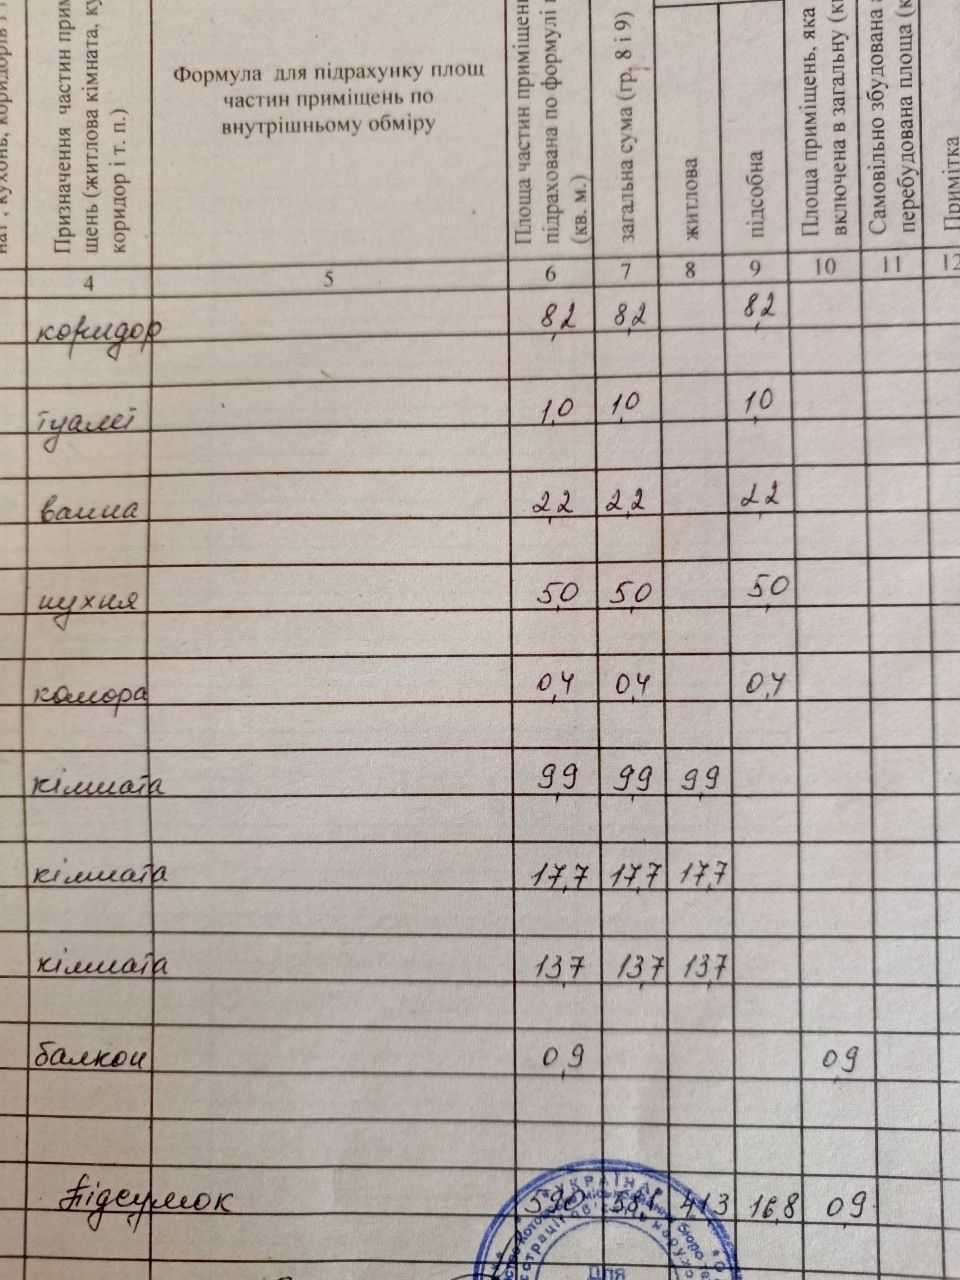 нат, кухонь, коридорів і
Призначення частин прим
щень (житлова кімната, ку
коридор і т. п.)
Формула для підрахунку площ
частин приміщень по
внутрішньому обміру
Площа частин приміщен
підрахована по формулі
(кв. м.)
загальна сума (гр. 8 і 9)
житлова
підсобна
Площа приміщень, яка
включена в загальну (к
Самовільно збудована
перебудована площа (к
Примітка
4 5 6 7 8 9 10 11 12
коридор 8,2 8,2 8,2
туалет 1,0 1,0 1,0
ванна 2,2 2,2 2,2
кухня 5,0 5,0 5,0
комора 0,4 0,4 0,4
кімната 9,9 9,9 9,9
кімната 17,7 17,7 17,7
кімната 13,7 13,7 13,7
балкон 0,9 0,9
Підсумок 59,0 58,1 41,3 16,8 0,9
* УКРАЇНА *
Для